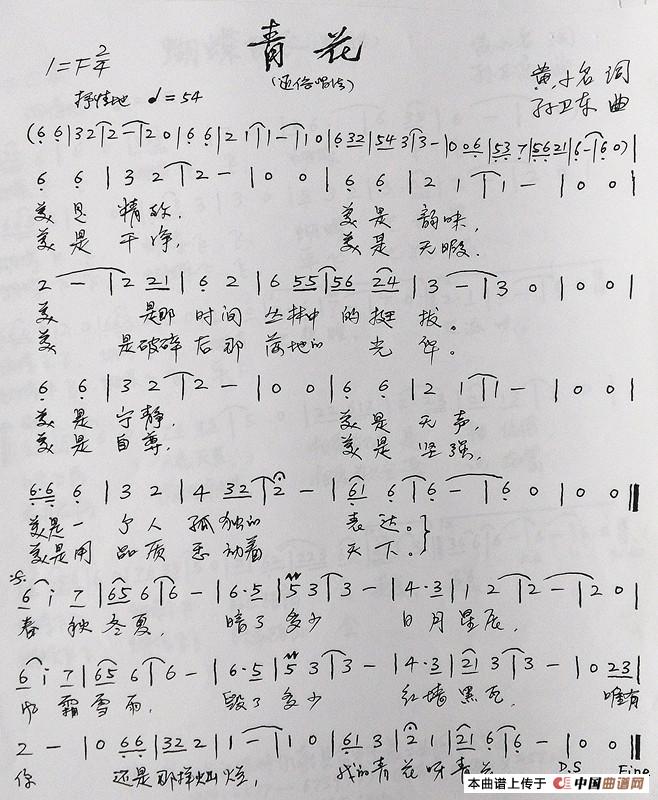 青花
(通俗唱法)
1=F 2/4
黄小名 词
抒情地 ♩=54
孙卫东 曲
(6 6|3 2 2—|2 0|6 6|2 1 1—|1 0|6 32|54 3 3—|0 06|53 7|56 21|6—|6 0)|
6 6 | 3 2 | 2 — | 0 0 | 6 6 | 2 1 | 1 — | 0 0 |
美 是 精致, 美 是 韵味,
美 是 干净, 美 是 无暇.
2 — | 2 21 | 6 2 | 6 55 | 56 24 | 3 — | 3 0 | 0 0 |
美 是那 时间 丛林中 的挺 拔。
美 是破碎 后那 落地的 光 辉。
6 6 | 3 2 | 2 — | 0 0 | 6 6 | 2 1 | 1 — | 0 0 |
美 是 宁静, 美 是 无声,
美 是 自尊, 美 是 坚强,
6·6 6 | 3 2 | 4 32 | 2 — | 61 6 | 6 — | 6 0 | 0 0 ‖
美是一 个人 孤独的 表达。}
美是用 品质 感动着 天下。}
6 i 7 | 65 6 | 6 — | 6·5 | 5 3 | 3 — | 4·3 | 1 2 | 2 — | 2 0 |
春 秋 冬夏, 暗了 多少 日月星辰,
6 i 7 | 65 6 | 6 — | 6·5 | 5 3 | 3 — | 4·3 | 21 3 | 3 — | 0 23 |
风 霜 雪雨, 毁了 多少 红墙黑瓦, 唯有
2 — | 0 66 | 32 2 | 1 — | 1 0 | 61 3 | 2 1 | 21 6 | 6 — | 0 0 ‖
你 还是那样灿烂, 我的青花呀青花
D.S Fine
本曲谱上传于 中国曲谱网